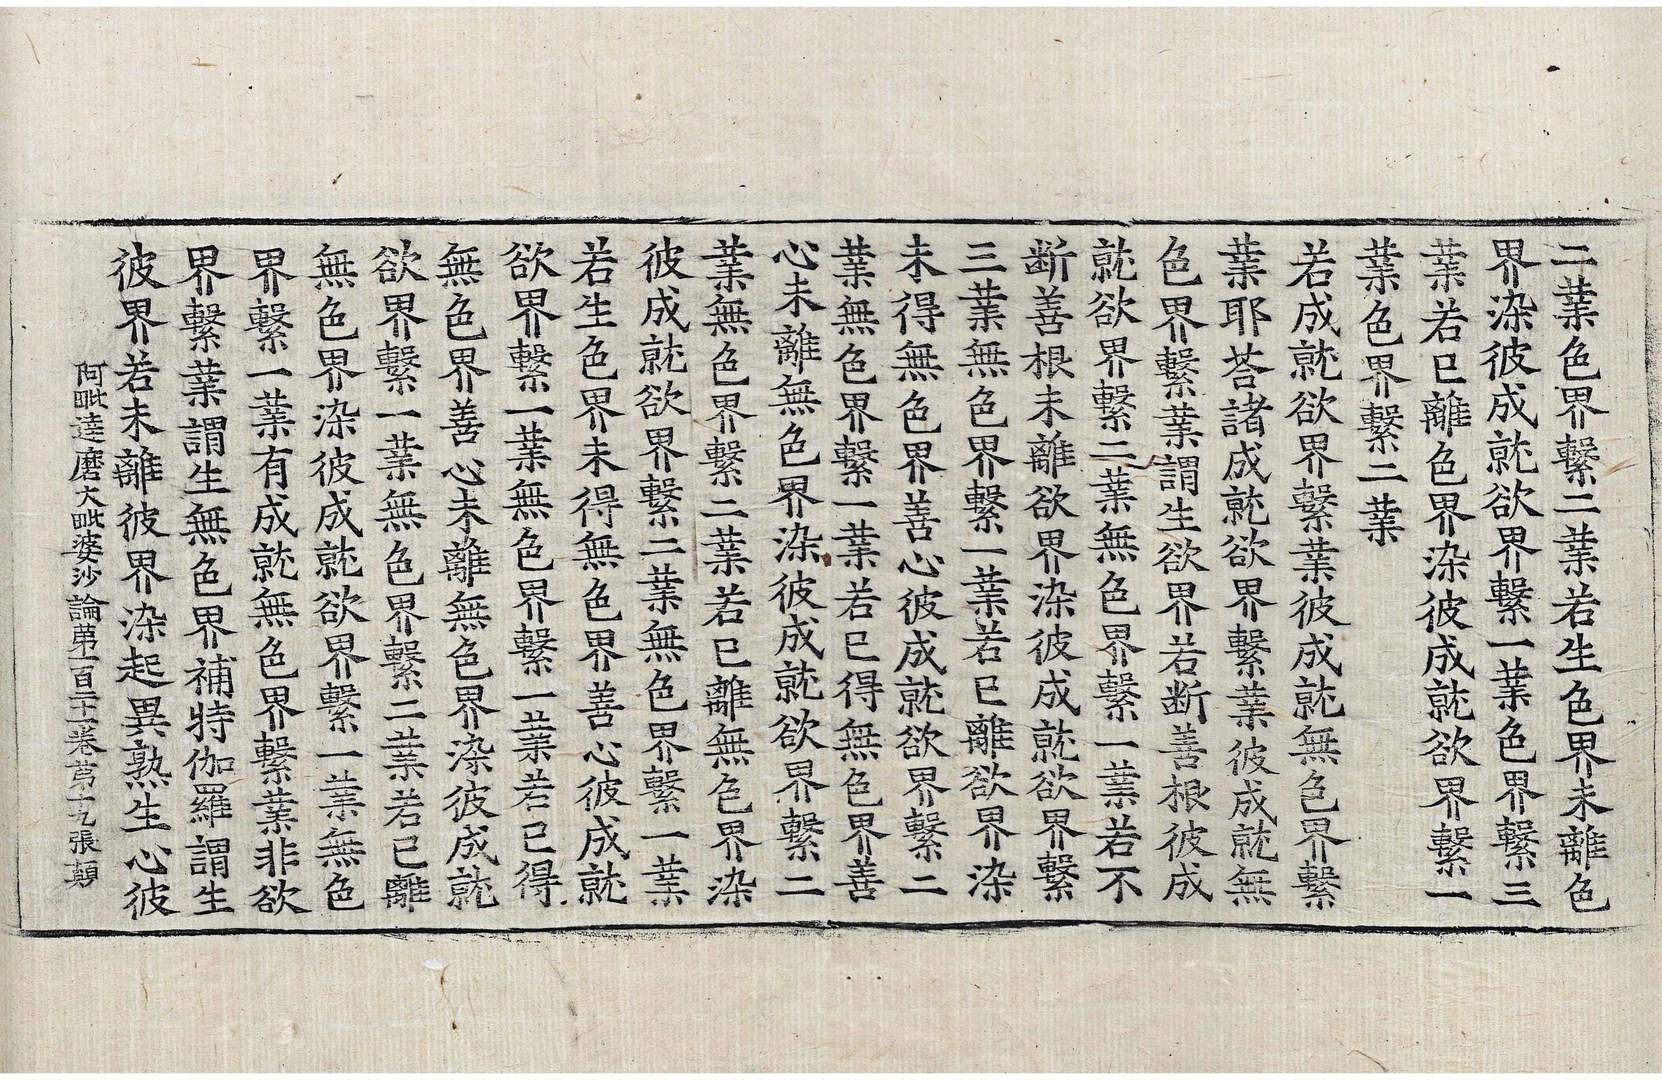 二業色界繫二業若生色界未離色
界染彼成就欲界繫一業色界繫三
業若已離色界染彼成就欲界繫一
業色界繫二業
若成就欲界繫業彼成就無色界繫
業耶荅諸成就欲界繫業彼成就無
色界繫業謂生欲界若断善根彼成
就欲界繫二業無色界繫一業若不
断善根未離欲界染彼成就欲界繫
三業無色界繫一業若已離欲界染
未得無色界善心彼成就欲界繫二
業無色界繫一業若已得無色界善
心未離無色界染彼成就欲界繫二
業無色界繫二業若已離無色界染
彼成就欲界繫二業無色界繫一業
若生色界未得無色界善心彼成就
欲界繫一業無色界繫一業若已得
無色界善心未離無色界染彼成就
欲界繫一業無色界繫二業若已離
無色界染彼成就欲界繫一業無色
界繫一業有成就無色界繫業非欲
界繫業謂生無色界補特伽羅謂生
彼界若未離彼界染起異熟生心彼
阿毗達磨大毗婆沙論第一百二十二卷第十九張 顛